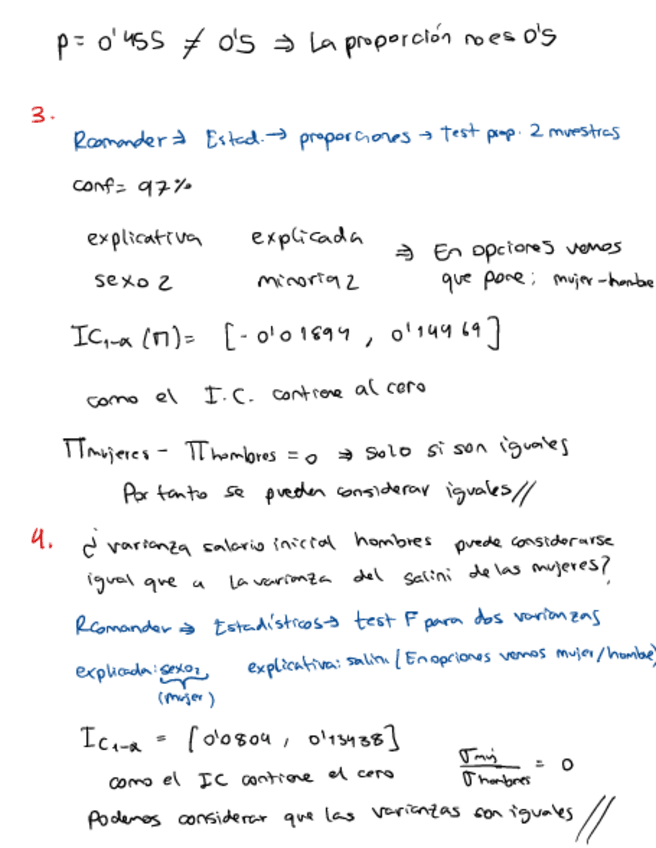 p = 0'455 ≠ 0'5 ⇒ La proporción no es 0'5
3.
Rcomander ⇒ Estad. → proporciones → test prop. 2 muestras
conf = 97%
explicativa explicada ⇒ En opciones vemos
sexo 2 minoria 2 que pone: mujer - hombre
IC1-α (Π) = [-0'01894, 0'14969]
como el I.C. contiene al cero
Πmujeres - Πhombres = 0 ⇒ solo si son iguales
Por tanto se pueden considerar iguales //
4. ¿varianza salario inicial hombres puede considerarse
igual que a la varianza del salini de las mujeres?
RComander ⇒ Estadísticos → test F para dos varianzas
explicada: sexo2 explicativa: salini (En opciones vemos mujer/hombre)
(mujer)
IC1-α = [0'0804, 0'13438]
como el IC contiene el cero σmuj / σhombres = 0
Podemos considerar que las varianzas son iguales //